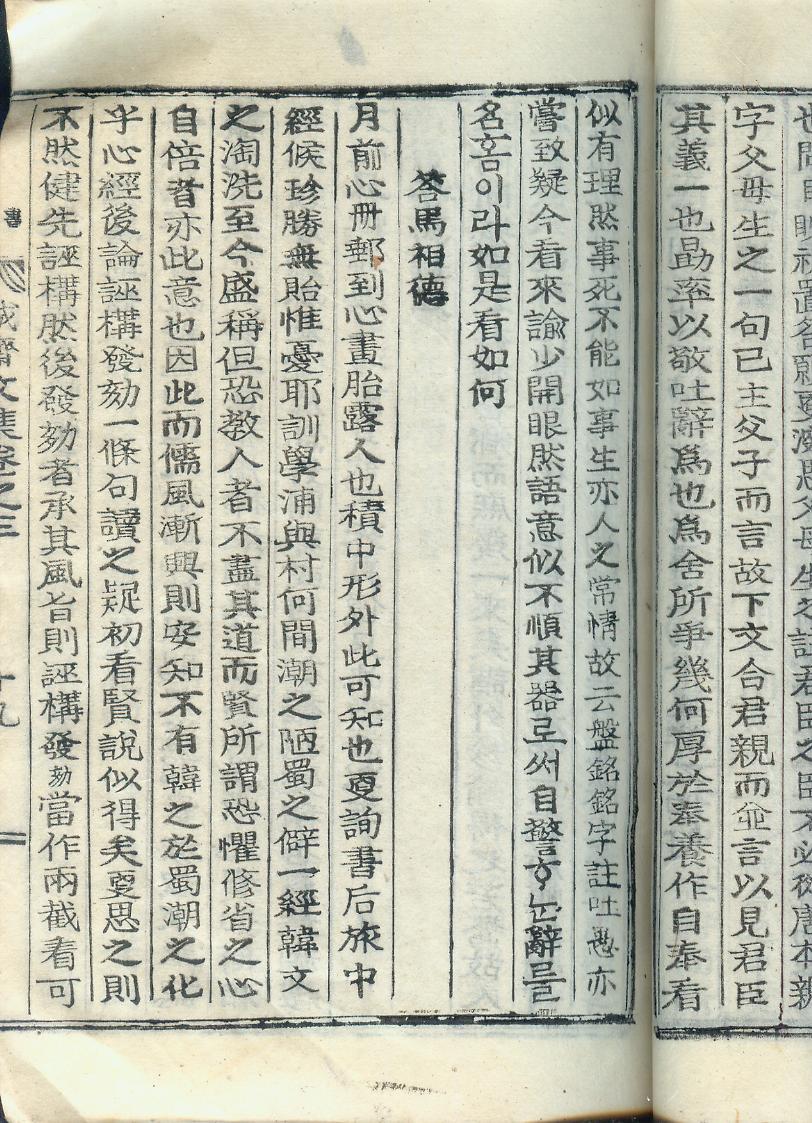 字父母生之一句已主父子而言故下文合君親而並言以見君臣
其義一也勗率以敬吐辭爲也爲舍所爭幾何厚於奉養作自奉看
似有理然事死不能如事生亦人之常情故云盤銘銘字註吐愚亦
嘗致疑今看來諭少開眼然語意似不順其器로써自警하는辭를
名홈이라如是看如何
答馬祖德
月前心冊郵到心畫胎露人也積中形外此可知也更詢書后旅中
經候珍勝無貽惟憂耶訓學浦與村何間潮之陋蜀之僻一經韓文
之淘洗至今盛稱但恐敎人者不盡其道而賢所謂恐懼修省之心
自倍者亦此意也因此而儒風漸興則安知不有韓之於蜀潮之化
乎心經後論誣構發劾一條句讀之疑初看賢說似得矣更思之則
不然健先誣構然後發劾者承其風旨則誣構發劾當作兩截看可
書
齋文集卷之三
十九